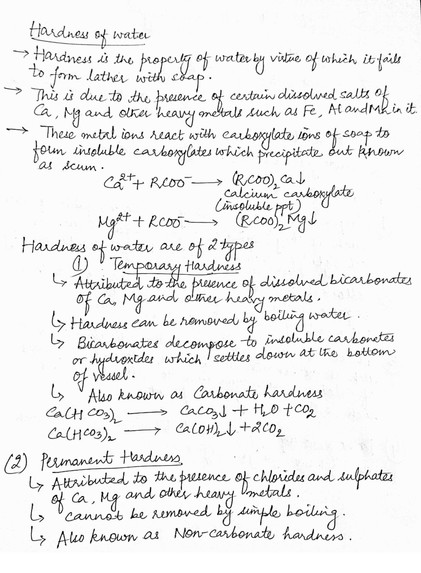 Hardness of water
→ Hardness is the property of water by virtue of which it fails
to form lather with soap.
→ This is due to the presence of certain dissolved salts of
Ca, Mg and other heavy metals such as Fe, Al and Mn in it.
→ These metal ions react with carboxylate ions of soap to
form insoluble carboxylates which precipitate out known
as scum.
Ca²⁺ + RCOO⁻ → (RCOO)₂Ca↓
calcium carboxylate
(insoluble ppt)
Mg²⁺ + RCOO⁻ → (RCOO)₂Mg↓
Hardness of water are of 2 types
(1) Temporary Hardness
↳ Attributed to the presence of dissolved bicarbonates
of Ca, Mg and other heavy metals.
↳ Hardness can be removed by boiling water.
↳ Bicarbonates decompose to insoluble carbonates
or hydroxides which settles down at the bottom
of vessel.
↳ Also known as Carbonate hardness
Ca(HCO₃)₂ → CaCO₃↓ + H₂O + CO₂
Ca(HCO₃)₂ → Ca(OH)₂↓ + 2CO₂
(2) Permanent Hardness
↳ Attributed to the presence of chlorides and sulphates
of Ca, Mg and other heavy metals.
↳ cannot be removed by simple boiling.
↳ Also known as Non-carbonate hardness.